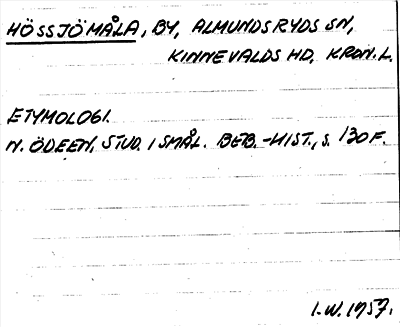 HÖSSJÖMÅLA, BY, ALMUNDSRYDS SN,
KINNEVALDS HD, KRON. L.
ETYMOLOGI.
N. ÖDEEN, STUD. I SMÅL. BEB.-HIST., S. 130 F.
I.W. 1957.